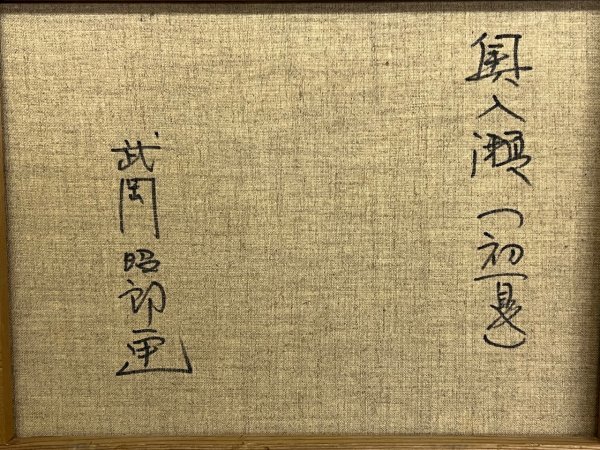 奥入瀬(初夏)
武岡昭郎画